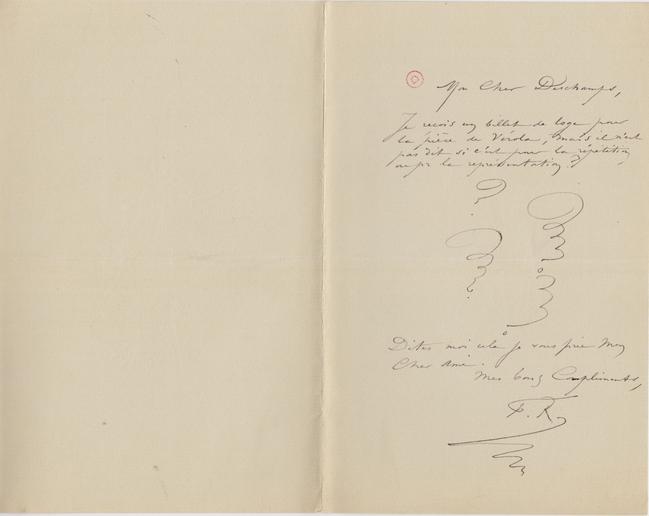 Mon Cher Deschamps,
Je reçois un billet de loge pour
la pièce de Vérola, mais il n'est
pas dit si c'est pour la répétition
ou pr la représentation?
Dites moi cela je vous prie Mon
Cher Ami.
Mes bons Compliments,
F. R.